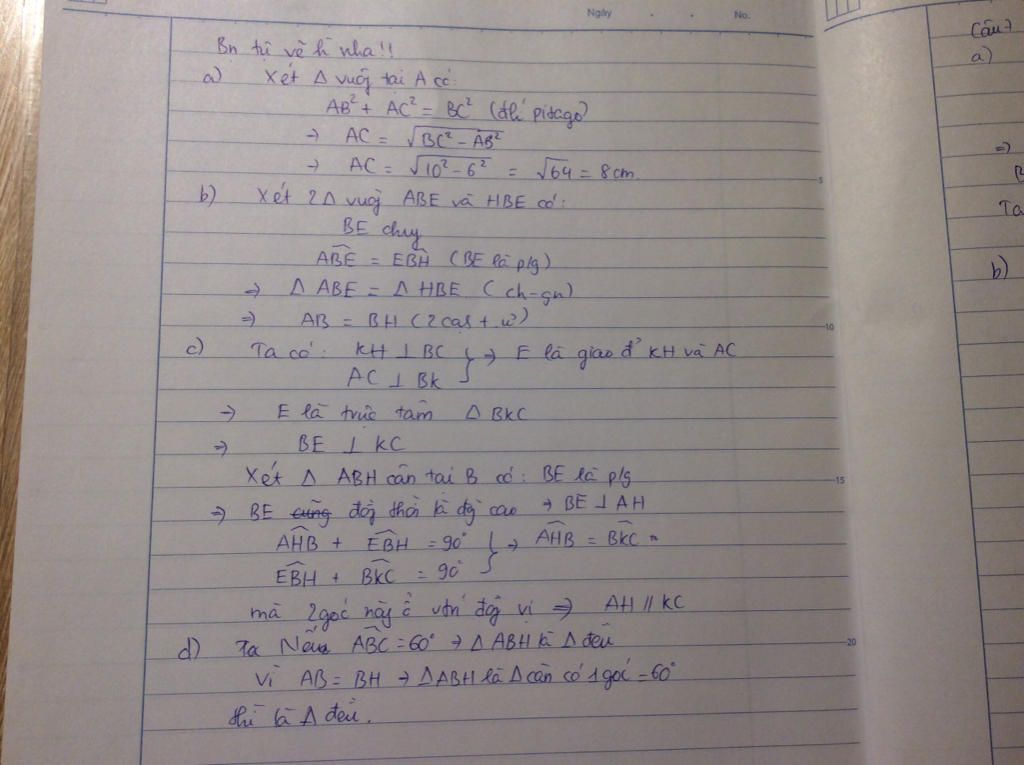 Ngày . . No.
Bn tự vẽ h̀ nha!!
a) Xét Δ vuôg tại A có:
AB² + AC² = BC² (đlí pitago)
→ AC = √BC² - AB²
→ AC = √10² - 6² = √64 = 8cm
b) Xét 2Δ vuôg ABE và HBE có:
BE chug
ABE = EBH (BE là p/g)
⇒ Δ ABE = Δ HBE (ch-gn)
⇒ AB = BH (2 cạh t ứ)
c) Ta có: KH ⊥ BC } → E là giao đ' KH và AC
AC ⊥ BK
→ E là trực tâm Δ BKC
⇒ BE ⊥ KC
Xét Δ ABH cân tại B có: BE là p/g
⇒ BE cũng đồg thời là đg cao → BE ⊥ AH
AHB + EBH = 90° } → AHB = BKC
EBH + BKC = 90°
mà 2 góc này ở vtrí đồg vị ⇒ AH // KC
d) Ta Nếu ABC = 60° → Δ ABH là Δ đều
Vì AB = BH → ΔABH là Δ cân có 1 góc = 60°
thì là Δ đều.
5
10
15
20
Câu 7
a)
⇒
B
Ta
b)